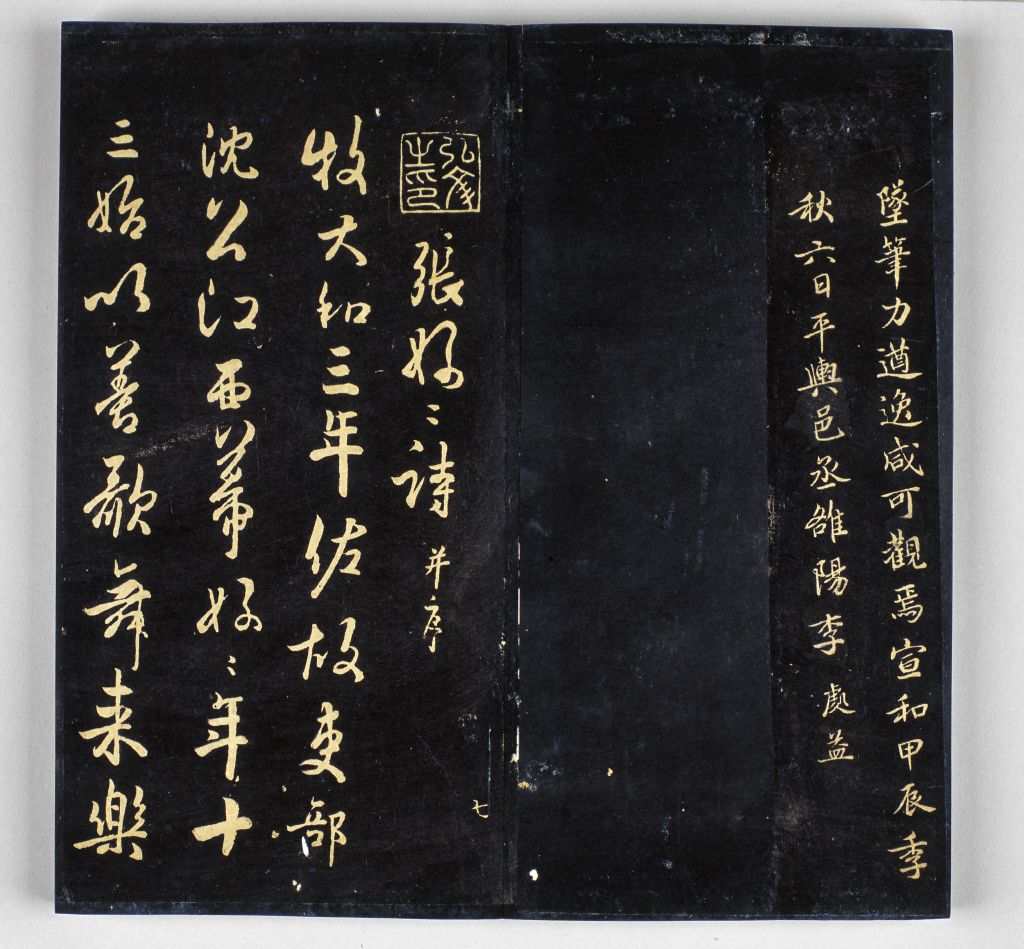 墜筆力遒逸咸可觀焉宣和甲辰季
秋六日平輿邑丞雒陽李處益
七
弘文之印
張好〻詩 并序
牧大和三年佐故吏部
沈公江西幕好〻年十
三始以善歌舞来樂